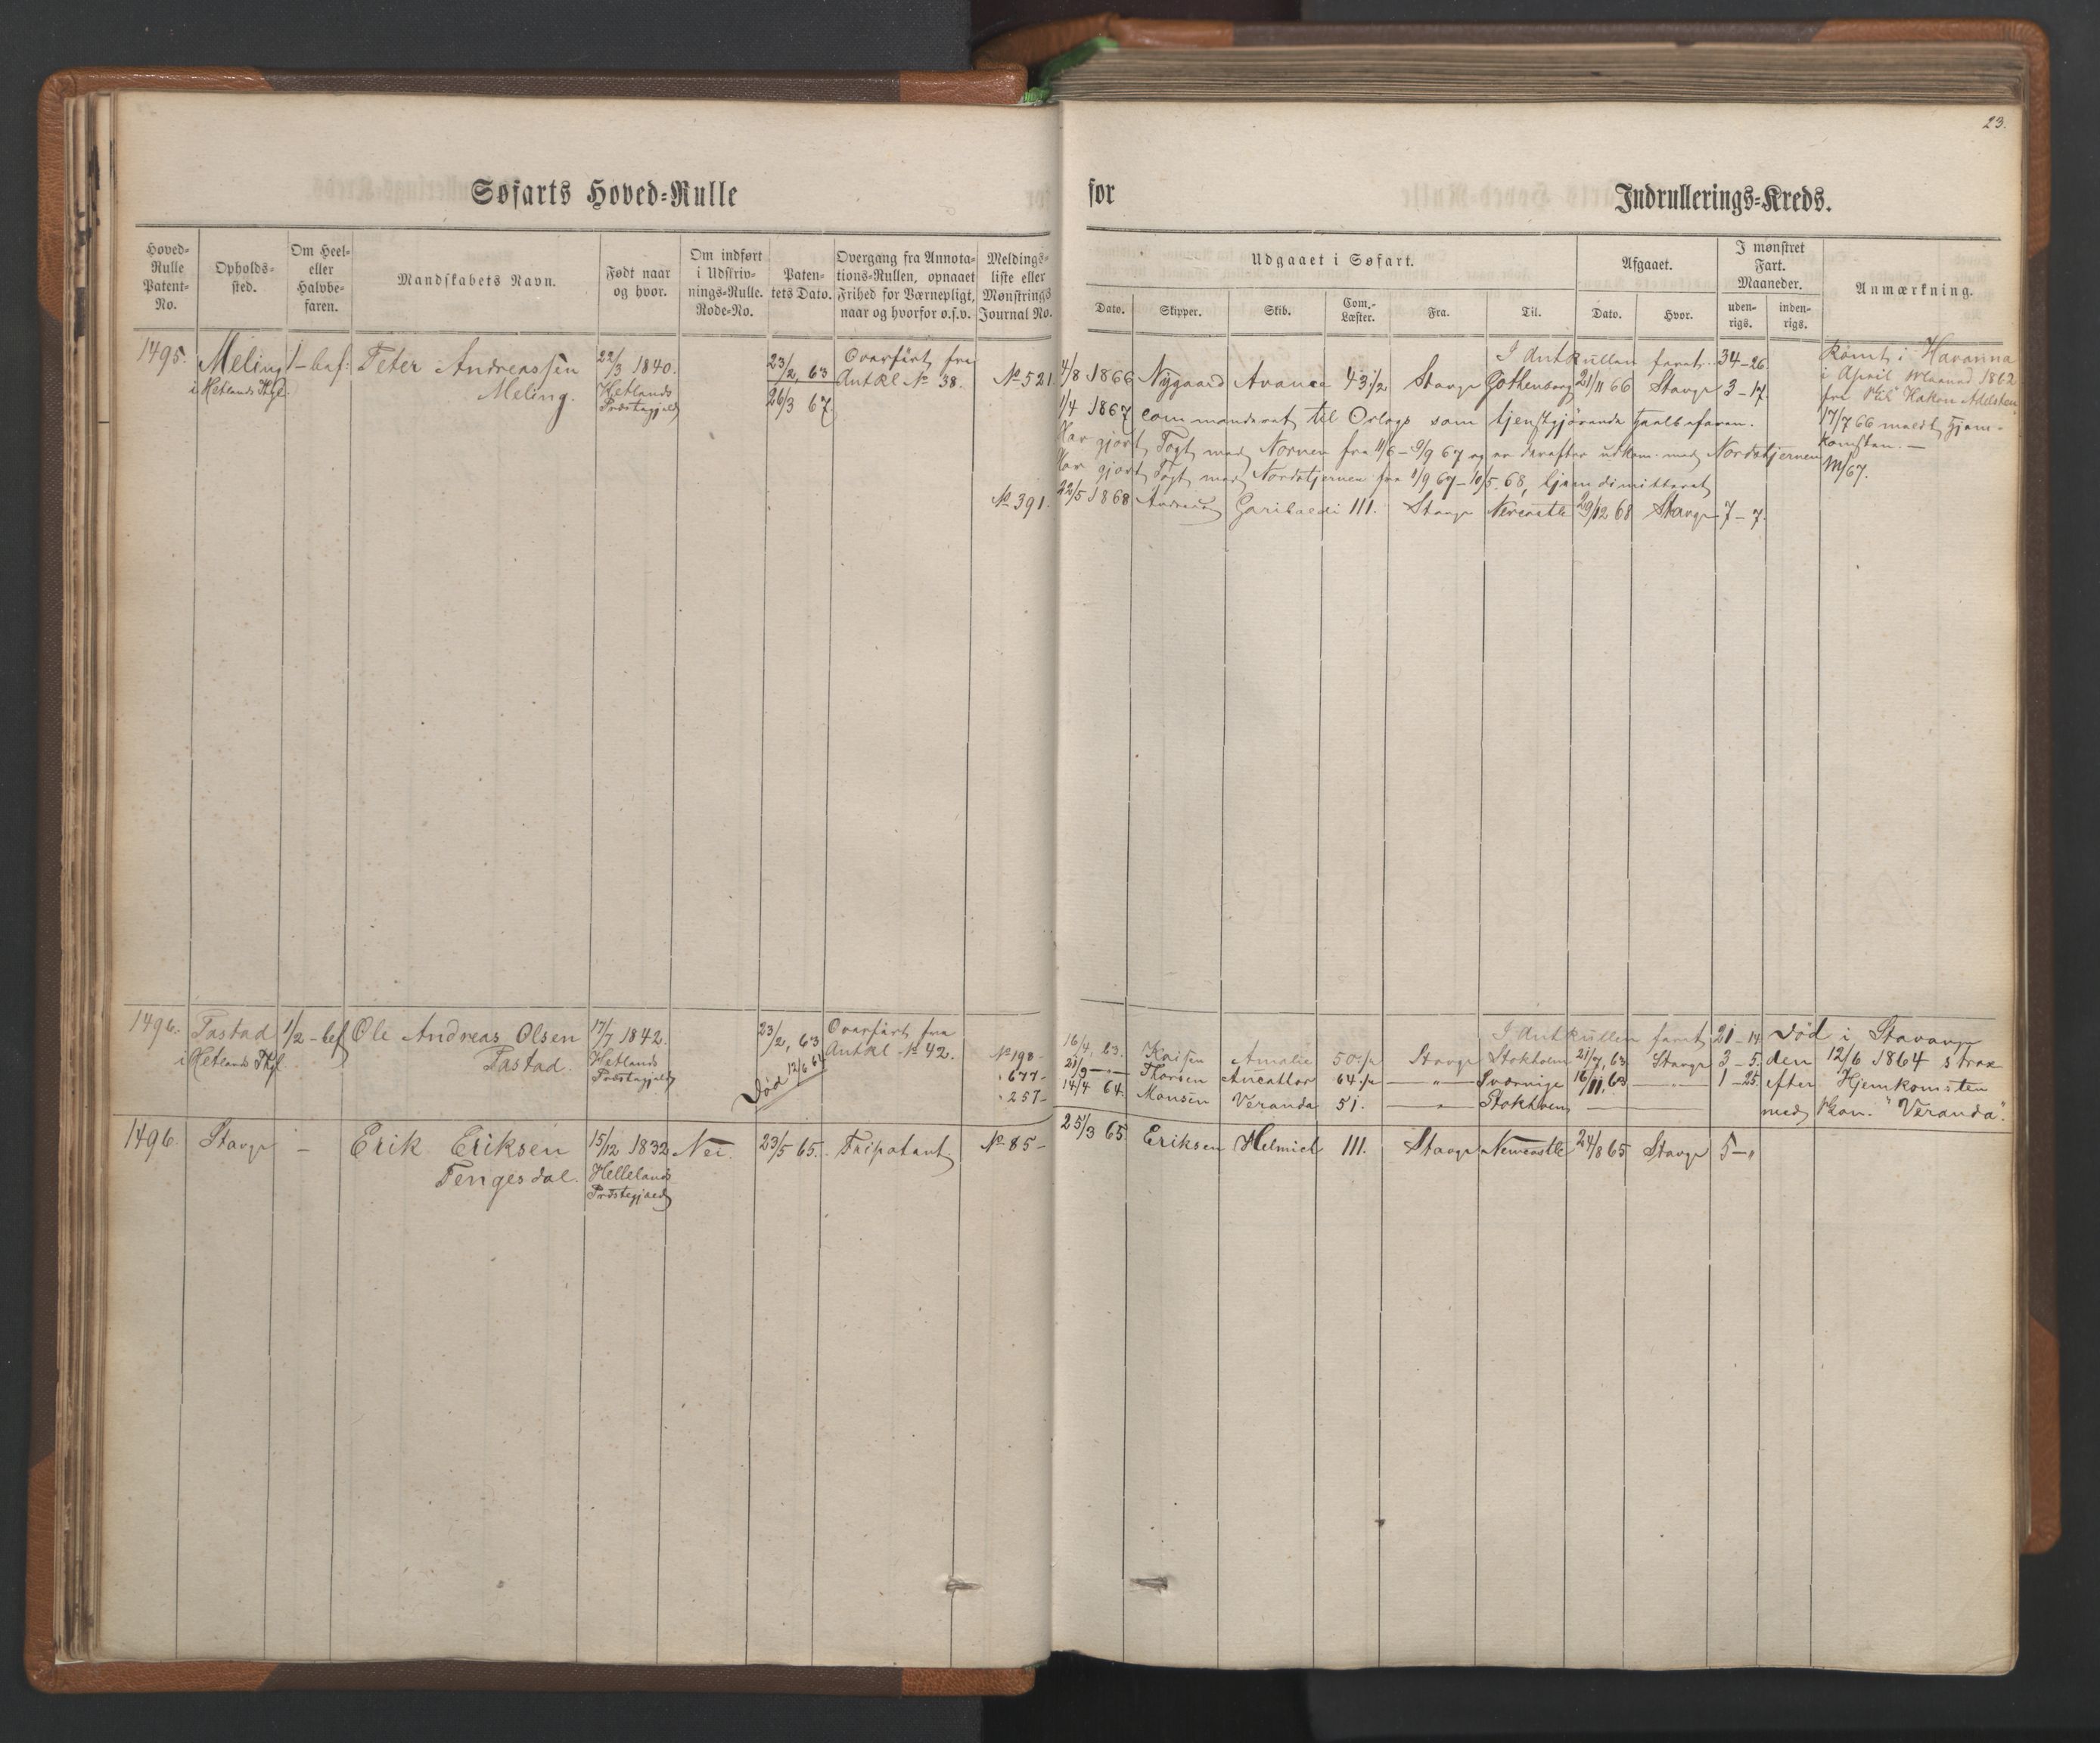 23.
Søfarts Hoved=Rulle
for Indrullerings=Kreds.
Hoved=Rulle Patent=No.
Opholds=sted.
Om Heel= eller Halvbe=faren.
Mandskabets Navn.
Født naar og hvor.
Om indført i Udskriv=nings=Rulle. Rode=No.
Paten=tets Dato.
Overgang fra Annota=tions=Rullen, opnaaet Frihed for Værnepligt, naar og hvorfor o.s.v.
Meldings=liste eller Mønstrings Journal No.
Udgaaet i Søfart.
Dato. Skipper. Skib. Com.=Læster. Fra. Til.
Afgaaet.
Dato. Hvor.
I mønstret Fart. Maaneder.
uden=rigs. inden=rigs.
Anmærkning.
1495. Meling 1-bef: Peter Andreassen 22/3 1840. 23/2, 63 Overført fra
i Hetlands Thgl. Meling. Hetlands Antkl No 38.
Præstegjeld 26/3 67
I Antkullen faret. 34-26
No 521 4/8 1866 Nygaard Avance 43 1/2 Stavgr Gothenborg 21/11 66 Stavgr 3-17.
1/4 1867 commanderet til Orlogs som tjenstgjørende
Har gjort Togt med Nornen fra 11/6-9/9 67 og er derefter udkom. med Nordstjernen
Har gjort Togt med Nordstjernen fra 1/9 67-10/5 68, hjemdimitteret
No 391. 22/5 1868 Garibaldi 111. Stavgr Newcastle 29/12 68 Stavgr 7-7.
Rømt i Havanna
i April Maaned 1862
fra Skib Hakon Adelsten.
17/7 66 meldt Hjem-
komsten. —
M/67.
1496. Tastad 1/2-bef Ole Andreas Olsen 17/7 1842. 23/2, 63 Overført fra
i Hetlands Thgl. Tastad. Hetlands Antkl No 42.
Præstegjeld Død 12/6 64
I Antkullen faret 21-14
No 198- 16/4, 63. Kaisen Amalie 50 Stavgr Stokholm 21/7, 63 Stavgr 3-5.
677- 21/9 Thorsen 64 — " — Sverrige 16/11, 63 1-25.
257- 14/4 64. Monsen Veranda 51. — " — Stokholm —
Død i Stavanger
den 12/6 1864 strax
efter Hjemkomsten
med "Veranda".
1496. Stavgr — Erik Eriksen 15/12 1832 Nei. 23/5 65. Fripatent No 85- 25/3 65 Eriksen Helmich 111. Stavgr Newcastle 24/8 65 Stavgr 5-"
Tengesdal. Hellelands
Præstegjeld